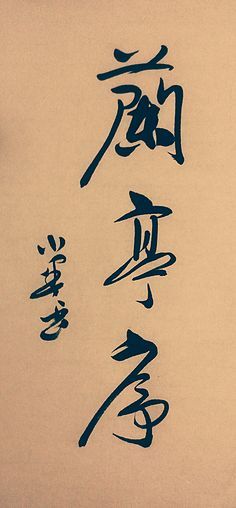 蘭亭序
小華書